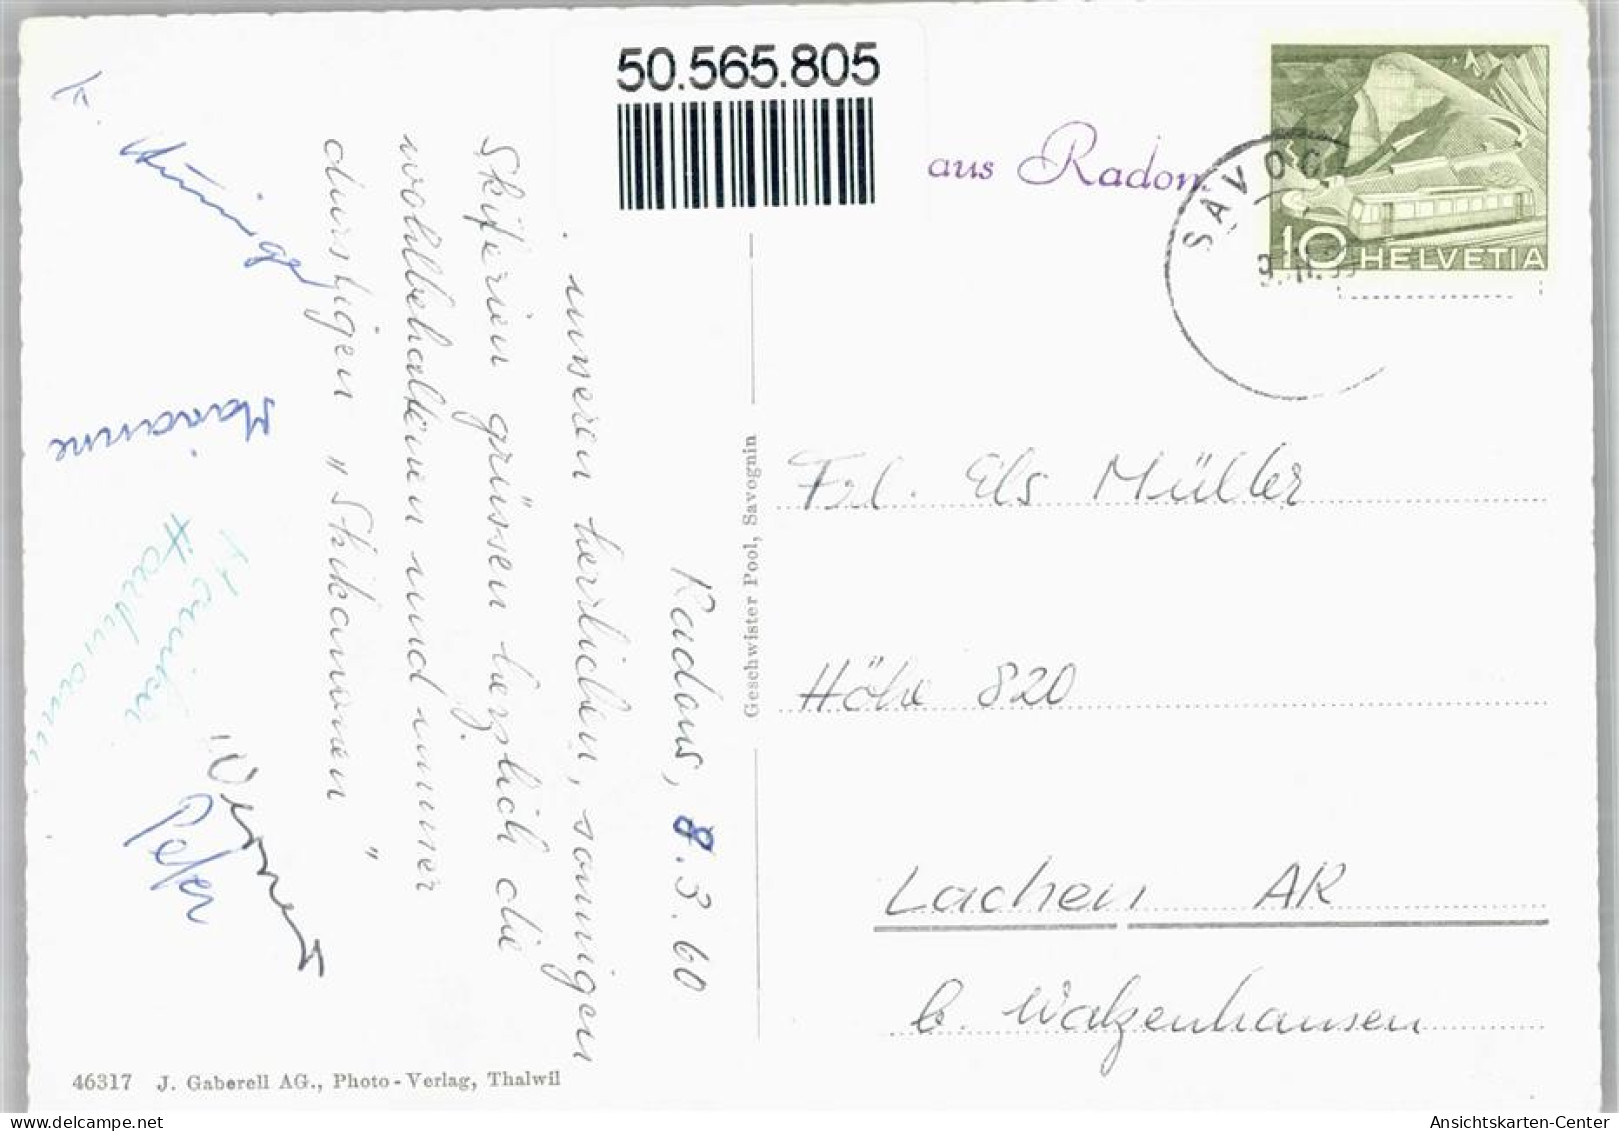 50.565.805
aus Radons
SAVOG
10 HELVETIA
Radons, 8.3.60
. unseren herrlichen, sonnigen
Skiferien grüssen herzlich die
wohlbehaltenen und immer
durstigen „Skikanonen"
Marianne
Hanniker
Hartmann
Werner
Peter
Geschwister Pool, Savognin
Frl. Els Müller
Höhe 820
Lachen AR
b. Walzenhausen
46317 J. Gaberell AG., Photo-Verlag, Thalwil
Ansichtskarten-Center